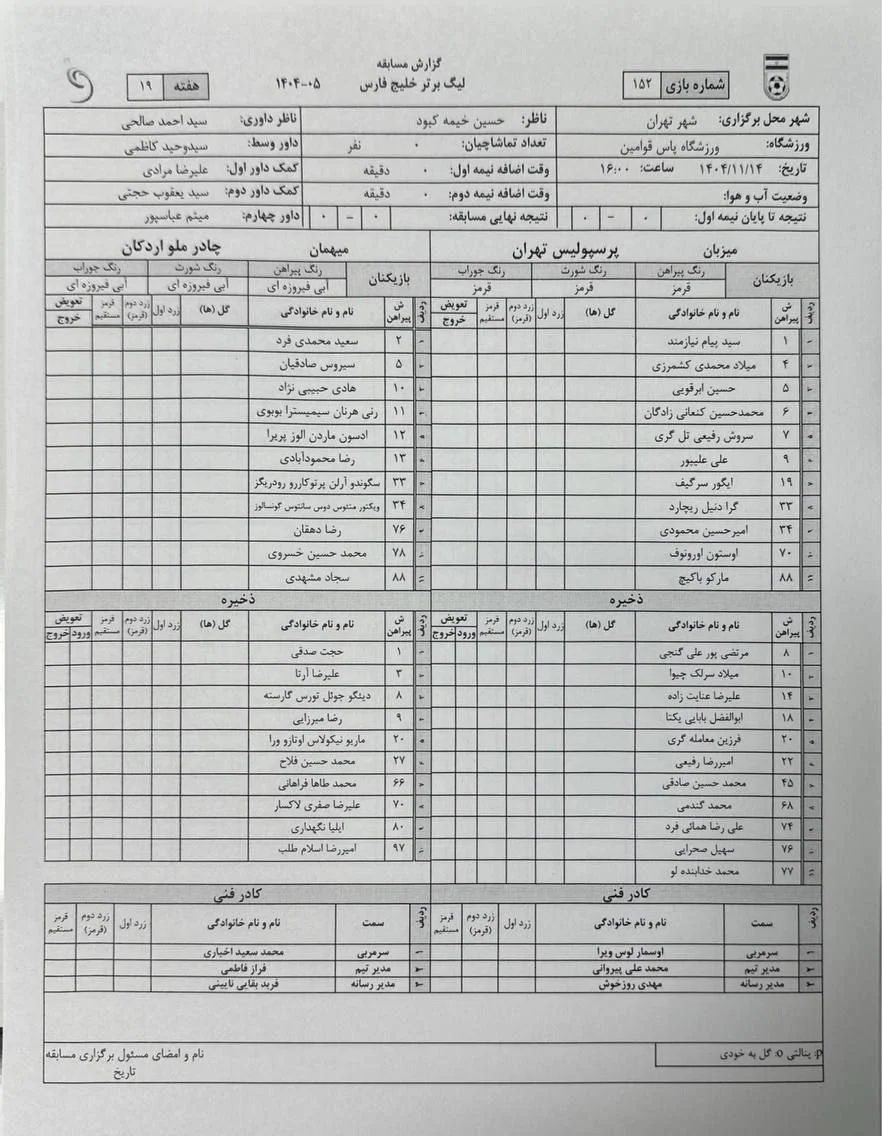 گزارش مسابقه
لیگ برتر خلیج فارس ۰۵-۱۴۰۴
شماره بازی ۱۵۲
هفته ۱۹
شهر محل برگزاری: شهر تهران
ناظر: حسین خیمه کبود
ناظر داوری: سید احمد صالحی
ورزشگاه: ورزشگاه پاس قوامین
تعداد تماشاچیان: ۰ نفر
داور وسط: سیدوحید کاظمی
تاریخ: ۱۴۰۴/۱۱/۱۴ ساعت: ۱۶:۰۰
وقت اضافه نیمه اول: ۰ دقیقه
کمک داور اول: علیرضا مرادی
وضعیت آب و هوا:
وقت اضافه نیمه دوم: ۰ دقیقه
کمک داور دوم: سید یعقوب حجتی
نتیجه تا پایان نیمه اول: ۰ – ۰
نتیجه نهایی مسابقه: ۰ – ۰
داور چهارم: میثم عباسپور
میزبان پرسپولیس تهران
بازیکنان
رنگ پیراهن رنگ شورت رنگ جوراب
قرمز قرمز قرمز
ردیف ش پیراهن نام و نام خانوادگی گل (ها) زرد اول زرد دوم (قرمز) قرمز مستقیم تعویض خروج
۱ سید پیام نیازمند
۴ میلاد محمدی کشمرزی
۵ حسین ابرقویی
۶ محمدحسین کنعانی زادگان
۷ سروش رفیعی تل گری
۹ علی علیپور
۱۹ ایگور سرگیف
۳۳ گرا دنیل ریچارد
۳۴ امیرحسین محمودی
۷۰ اوستون اورونوف
۸۸ مارکو باکیچ
ذخیره
ردیف ش پیراهن نام و نام خانوادگی گل (ها) زرد اول زرد دوم (قرمز) قرمز مستقیم تعویض ورود خروج
۸ مرتضی پور علی گنجی
۱۰ میلاد سرلک چیوا
۱۴ علیرضا عنایت زاده
۱۸ ابوالفضل بابایی یکتا
۲۰ فرزین معامله گری
۲۲ امیررضا رفیعی
۴۵ محمد حسین صادقی
۶۸ محمد گندمی
۷۴ علی رضا همائی فرد
۷۶ سهیل صحرایی
۷۷ محمد خدابنده لو
کادر فنی
ردیف سمت نام و نام خانوادگی زرد اول زرد دوم (قرمز) قرمز مستقیم
۱ سرمربی اوسمار لوس ویرا
۲ مدیر تیم محمد علی پیروانی
۳ مدیر رسانه مهدی روزخوش
میهمان چادر ملو اردکان
بازیکنان
رنگ پیراهن رنگ شورت رنگ جوراب
آبی فیروزه ای آبی فیروزه ای آبی فیروزه ای
ردیف ش پیراهن نام و نام خانوادگی گل (ها) زرد اول زرد دوم (قرمز) قرمز مستقیم تعویض خروج
۲ سعید محمدی فرد
۵ سیروس صادقیان
۱۰ هادی حبیبی نژاد
۱۱ رنی هرنان سیمیسترا بوبوی
۱۲ ادسون ماردن الوز پریرا
۱۳ رضا محمودآبادی
۳۳ سگوندو آرلن پرتوکاررو رودریگز
۳۴ ویکتور منتوس دوس سانتوس گونسالوز
۷۶ رضا دهقان
۷۸ محمد حسین خسروی
۸۸ سجاد مشهدی
ذخیره
ردیف ش پیراهن نام و نام خانوادگی گل (ها) زرد اول زرد دوم (قرمز) قرمز مستقیم تعویض ورود خروج
۱ حجت صدقی
۳ علیرضا آرتا
۸ دیئگو جوئل تورس گارسته
۹ رضا میرزایی
۲۰ ماریو نیکولاس اوتازو ورا
۲۷ محمد حسین فلاح
۶۶ محمد طاها فراهانی
۷۰ علیرضا صفری لاکسار
۸۰ ایلیا نگهداری
۹۷ امیررضا اسلام طلب
کادر فنی
ردیف سمت نام و نام خانوادگی زرد اول زرد دوم (قرمز) قرمز مستقیم
۱ سرمربی محمد سعید اخباری
۲ مدیر تیم فراز فاطمی
۳ مدیر رسانه فرید بقایی نایینی
p: پنالتی o: گل به خودی
نام و امضای مسئول برگزاری مسابقه
تاریخ